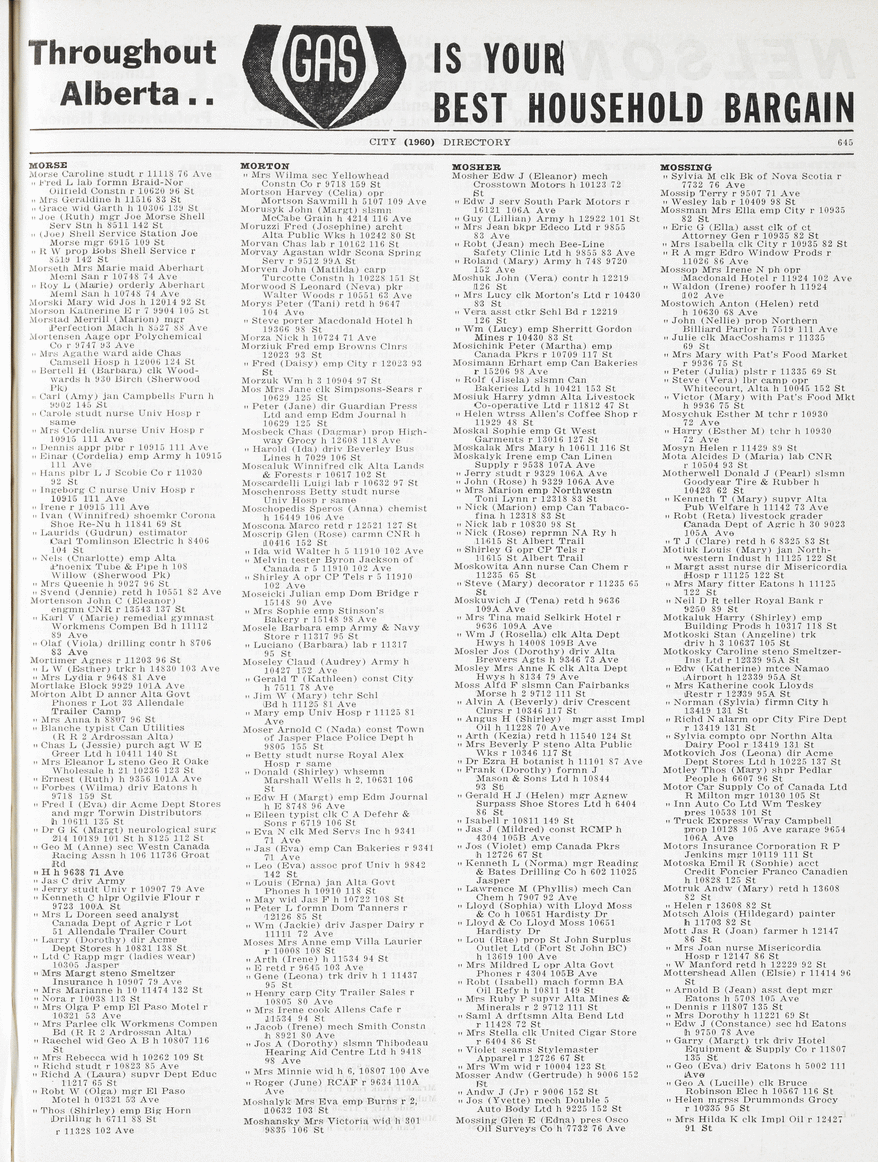 Throughout
Alberta . .
GAS
IS YOUR
BEST HOUSEHOLD BARGAIN
CITY (1960) DIRECTORY
645
MORSE
Morse Caroline studt r 11118 76 Ave
" Fred L lab formn Braid-Nor
Oilfield Constn r 10620 96 St
" Mrs Geraldine h 11516 83 St
" Grace wid Garth h 10306 139 St
" Joe (Ruth) mgr Joe Morse Shell
Serv Stn h 8511 142 St
" (Joe) Shell Service Station Joe
Morse mgr 6915 109 St
" R W prop Bobs Shell Service r
8519 142 St
Morseth Mrs Marie maid Aberhart
Meml San r 10748 74 Ave
" Roy L (Marie) orderly Aberhart
Meml San h 10748 74 Ave
Morski Mary wid Jos h 12014 92 St
Morson Katherine E r 7 9904 105 St
Morstad Merrill (Marion) mgr
Perfection Mach h 8527 88 Ave
Mortensen Aage opr Polychemical
Co r 9747 93 Ave
" Mrs Agathe ward aide Chas
Camsell Hosp h 12006 124 St
" Bertell H (Barbara) clk Wood-
wards h 930 Birch (Sherwood
Pk)
" Carl (Amy) jan Campbells Furn h
9902 145 St
" Carole studt nurse Univ Hosp r
same
" Mrs Cordelia nurse Univ Hosp r
10915 111 Ave
" Dennis appr plbr r 10915 111 Ave
" Einar (Cordelia) emp Army h 10915
111 Ave
" Hans plbr L J Scobie Co r 11030
92 St
" Ingeborg C nurse Univ Hosp r
10915 111 Ave
" Irene r 10915 111 Ave
" Ivan (Winnifred) shoemkr Corona
Shoe Re-Nu h 11841 69 St
" Laurids (Gudrun) estimator
Carl Tomlinson Electric h 8406
104 St
" Nels (Charlotte) emp Alta
Phoenix Tube & Pipe h 108
Willow (Sherwood Pk)
" Mrs Queenie h 9027 96 St
" Svend (Jennie) retd h 10551 82 Ave
Mortenson John C (Eleanor)
engmn CNR r 13543 137 St
" Karl V (Marie) remedial gymnast
Workmens Compen Bd h 11112
89 Ave
" Olaf (Viola) drilling contr h 8706
83 Ave
Mortimer Agnes r 11203 96 St
" L W (Esther) trkr h 14830 103 Ave
" Mrs Lydia r 9648 81 Ave
Mortlake Block 9929 101A Ave
Morton Albt D anncr Alta Govt
Phones r Lot 33 Allendale
Trailer Camp
" Mrs Anna h 8807 96 St
" Blanche typist Can Utilities
(R R 2 Ardrossan Alta)
" Chas L (Jessie) purch agt W E
Greer Ltd h 10411 140 St
" Mrs Eleanor L steno Geo R Oake
Wholesale h 21 10236 123 St
" Ernest (Ruth) h 9356 101A Ave
" Forbes (Wilma) driv Eatons h
9718 159 St
" Fred I (Eva) dir Acme Dept Stores
and mgr Torwin Distributors
h 10611 135 St
" Dr G K (Margt) neurological surg
214 10189 101 St h 8125 112 St
" Geo M (Anne) sec Westn Canada
Racing Assn h 106 11736 Groat
Rd
" H h 9638 71 Ave
" Jas C driv Army
" Jerry studt Univ r 10907 79 Ave
" Kenneth C hlpr Ogilvie Flour r
9723 100A St
" Mrs L Doreen seed analyst
Canada Dept of Agric r Lot
51 Allendale Trailer Court
" Larry (Dorothy) dir Acme
Dept Stores h 10831 138 St
" Ltd C Rapp mgr (ladies wear)
10305 Jasper
" Mrs Margt steno Smeltzer
Insurance h 10907 79 Ave
" Mrs Marianne h 10 11474 132 St
" Nora r 10038 113 St
" Mrs Olga P emp El Paso Motel r
10321 53 Ave
" Mrs Parlee clk Workmens Compen
Bd (R R 2 Ardrossan Alta)
" Raechel wid Geo A B h 10807 116
St
" Mrs Rebecca wid h 10262 109 St
" Richd studt r 10823 85 Ave
" Richd A (Laura) supvr Dept Educ
11217 65 St
" Robt W (Olga) mgr El Paso
Motel h 01321 53 Ave
" Thos (Shirley) emp Big Horn
Drilling h 6711 88 St
r 11328 102 Ave
MORTON
" Mrs Wilma sec Yellowhead
Constn Co r 9718 159 St
Mortson Harvey (Celia) opr
Mortson Sawmill h 5107 109 Ave
Morusyk John (Margt) slsmn
McCabe Grain h 4214 116 Ave
Moruzzi Fred (Josephine) archt
Alta Public Wks h 10242 80 St
Morvan Chas lab r 10162 116 St
Morvay Agastan wldr Scona Spring
Serv r 9512 99A St
Morven John (Matilda) carp
Turcotte Constn h 10228 151 St
Morwood S Leonard (Neva) pkr
Walter Woods r 10551 63 Ave
Morys Peter (Tani) retd h 9647
104 Ave
" Steve porter Macdonald Hotel h
19366 98 St
Morza Nick h 10724 71 Ave
Morziuk Fred emp Browns Clnrs
12023 93 St
" Fred (Daisy) emp City r 12023 93
St
Morzuk Wm h 3 10904 97 St
Mos Mrs Jane clk Simpsons-Sears r
10629 125 St
" Peter (Jane) dir Guardian Press
Ltd and emp Edm Journal h
10629 125 St
Mosbeck Chas (Dagmar) prop High-
way Grocy h 12608 118 Ave
" Harold (Ida) driv Beverley Bus
Lines h 7029 106 St
Moscaluk Winnifred clk Alta Lands
& Forests r 10617 102 St
Moscardelli Luigi lab r 10632 97 St
Moschenross Betty studt nurse
Univ Hosp r same
Moschopedis Speros (Anna) chemist
h 16449 106 Ave
Moscona Marco retd r 12521 127 St
Moscrip Glen (Rose) carmn CNR h
10416 152 St
" Ida wid Walter h 5 11910 102 Ave
" Melvin tester Byron Jackson of
Canada r 5 11910 102 Ave
" Shirley A opr CP Tels r 5 11910
102 Ave
Moseicki Julian emp Dom Bridge r
15148 90 Ave
" Mrs Sophie emp Stinson's
Bakery r 15148 98 Ave
Mosele Barbara emp Army & Navy
Store r 11317 95 St
" Luciano (Barbara) lab r 11317
95 St
Moseley Claud (Audrey) Army h
10427 152 Ave
" Gerald T (Kathleen) const City
h 7511 78 Ave
" Jim W (Mary) tchr Schl
Bd h 11125 81 Ave
" Mary emp Univ Hosp r 11125 81
Ave
Moser Arnold C (Nada) const Town
of Jasper Place Police Dept h
9805 155 St
" Betty studt nurse Royal Alex
Hosp r same
" Donald (Shirley) whsemn
Marshall Wells h 2, 10631 106
St
" Edw H (Margt) emp Edm Journal
h E 8748 96 Ave
" Eileen typist clk C A Defehr &
Sons r 6719 106 St
" Eva N clk Med Servs Inc h 9341
71 Ave
" Jas (Eva) emp Can Bakeries r 9341
71 Ave
" Leo (Eva) assoc prof Univ h 9842
142 St
" Louis (Erna) jan Alta Govt
Phones h 10910 118 St
" May wid Jas F h 10722 108 St
" Peter L formn Dom Tanners r
12126 85 St
" Wm (Jackie) driv Jasper Dairy r
11111 72 Ave
Moses Mrs Anne emp Villa Laurier
r 10008 108 St
" Arth (Irene) h 11534 94 St
" E retd r 9645 103 Ave
" Gene (Leona) trk driv h 1 11437
95 St
" Henry carp City Trailer Sales r
10805 80 Ave
" Mrs Irene cook Allens Cafe r
11534 94 St
" Jacob (Irene) mech Smith Constn
h 8921 80 Ave
" Jos A (Dorothy) slsmn Thibodeau
Hearing Aide Centre Ltd h 9418
98 Ave
" Mrs Minnie wid h 6, 10807 100 Ave
" Roger (June) RCAF r 9634 110A
Ave
Moshalyk Mrs Eva emp Burns r 2,
10632 103 St
Moshansky Mrs Victoria wid h 301
9835 106 St
MOSHER
Mosher Edw J (Eleanor) mech
Crosstown Motors h 10123 72
St
" Edw J serv South Park Motors r
16121 106A Ave
" Guy (Lillian) Army h 12922 101 St
" Mrs Jean bkpr Edeco Ltd r 9855
83 Ave
" Robt (Jean) mech Bee-Line
Safety Clinic Ltd h 9855 83 Ave
" Roland (Mary) Army h 748 9720
152 Ave
Moshuk John (Vera) contr h 12219
126 St
" Mrs Lucy clk Morton's Ltd r 10430
83 St
" Vera asst ctkr Schl Bd r 12219
126 St
" Wm (Lucy) emp Sherritt Gordon
Mines r 10430 83 St
Mosichick Peter (Martha) emp
Canada Pkrs r 10709 117 St
Mosimann Erhart emp Can Bakeries
r 15206 98 Ave
" Rolf (Jisela) slsmn Can
Bakeries Ltd h 10421 153 St
Mosiuk Harry ydmn Alta Livestock
Co-operative Ltd r 11812 47 St
" Helen wtrss Allen's Coffee Shop r
11929 48 St
Moskal Sophie emp Gt West
Garments r 13016 127 St
Moskalak Mrs Mary h 10611 116 St
Moskalyk Irene emp Can Linen
Supply r 9538 107A Ave
" Jerry studt r 9329 106A Ave
" John (Rose) h 9329 106A Ave
" Mrs Marion emp Northwestn
Toni Lynn r 12318 83 St
" Nick (Marion) emp Can Tabaco-
fina h 12318 83 St
" Nick lab r 10830 98 St
" Nick (Rose) reprmn NA Ry h
11615 St Albert Trail
" Shirley G opr CP Tels r
11615 St Albert Trail
Moskowita Ann nurse Can Chem r
11235 65 St
" Steve (Mary) decorator r 11235 65
St
Moskuwich J (Tena) retd h 9636
109A Ave
" Mrs Tina maid Selkirk Hotel r
9636 109A Ave
" Wm J (Rosella) clk Alta Dept
Hwys h 14008 109B Ave
Mosler Jos (Dorothy) driv Alta
Brewers Agts h 9346 73 Ave
Mosley Mrs Anne K clk Alta Dept
Hwys h 8134 79 Ave
Moss Alfd F slsmn Can Fairbanks
Morse h 2 9712 111 St
" Alvin A (Beverly) driv Crescent
Clnrs r 10346 117 St
" Angus H (Shirley) mgr asst Impl
Oil h 11228 70 Ave
" Arth (Kezia) retd h 11540 124 St
" Mrs Beverly P steno Alta Public
Wks r 10346 117 St
" Dr Ezra H botanist h 11101 87 Ave
" Frank (Dorothy) formn J
Mason & Sons Ltd h 10844
93 St
" Gerald H J (Helen) mgr Agnew
Surpass Shoe Stores Ltd h 6404
86 St
" Isabell r 10811 149 St
" Jas J (Mildred) const RCMP h
4304 105B Ave
" Jos (Violet) emp Canada Pkrs
h 12726 67 St
" Kenneth L (Norma) mgr Reading
& Bates Drilling Co h 602 11025
Jasper
" Lawrence M (Phyllis) mech Can
Chem h 7907 92 Ave
" Lloyd (Sophia) with Lloyd Moss
& Co h 10651 Hardisty Dr
" Lloyd & Co Lloyd Moss 10651
Hardisty Dr
" Lou (Rae) prop St John Surplus
Outlet Ltd (Fort St John BC)
h 13619 100 Ave
" Mrs Mildred L opr Alta Govt
Phones r 4304 105B Ave
" Robt (Isabel) mach formn BA
Oil Refy h 10811 149 St
" Mrs Ruby P supvr Alta Mines &
Minerals r 2 9712 111 St
" Saml A drftsmn Alta Bend Ltd
r 11428 72 St
" Mrs Stella clk United Cigar Store
r 6404 86 St
" Violet seams Stylemaster
Apparel r 12726 67 St
" Mrs Wm wid r 10004 123 St
Mosser Andw (Gertrude) h 9006 152
St
" Andw J (Jr) r 9006 152 St
" Jos (Yvette) mech Double 5
Auto Body Ltd h 9225 152 St
Mossing Glen E (Edna) pres Osco
Oil Surveys Co h 7732 76 Ave
MOSSING
" Sylvia M clk Bk of Nova Scotia r
7732 76 Ave
Mossip Terry r 9507 71 Ave
" Wesley lab r 10409 98 St
Mossman Mrs Ella emp City r 10935
82 St
" Eric G (Ella) asst clk of ct
Attorney Gen r 10935 82 St
" Mrs Isabella clk City r 10935 82 St
" R A mgr Edro Window Prods r
11026 86 Ave
Mossop Mrs Irene N ph opr
Macdonald Hotel r 11924 102 Ave
" Waldon (Irene) roofer h 11924
102 Ave
Mostowich Anton (Helen) retd
h 10630 68 Ave
" John (Nellie) prop Northern
Billiard Parlor h 7519 111 Ave
" Julie clk MacCoshams r 11335
69 St
" Mrs Mary with Pat's Food Market
r 9936 75 St
" Peter (Julia) plstr r 11335 69 St
" Steve (Vera) lbr camp opr
Whitecourt, Alta h 10045 152 St
" Victor (Mary) with Pat's Food Mkt
h 9936 75 St
Mosychuk Esther M tchr r 10930
72 Ave
" Harry (Esther M) tchr h 10930
72 Ave
Mosyn Helen r 11429 89 St
Mota Alcides D (Maria) lab CNR
r 10504 93 St
Motherwell Donald J (Pearl) slsmn
Goodyear Tire & Rubber h
10423 62 St
" Kenneth T (Mary) supvr Alta
Pub Welfare h 11142 73 Ave
" Robt (Reta) livestock grader
Canada Dept of Agric h 30 9023
105A Ave
" T J (Clare) retd h 6 8325 83 St
Motiuk Louis (Mary) jan North-
western Indust h 11125 122 St
" Margt asst nurse dir Misericordia
Hosp r 11125 122 St
" Mrs Mary fitter Eatons h 11125
122 St
" Neil D R teller Royal Bank r
9250 89 St
Motkaluk Harry (Shirley) emp
Building Prods h 10317 118 St
Motkoski Stan (Angeline) trk
driv h 3 10637 105 St
Motkosky Caroline steno Smeltzer-
Ins Ltd r 12339 95A St
" Edw (Katherine) mtce Namao
Airport h 12339 95A St
" Mrs Katherine cook Lloyds
Restr r 12339 95A St
" Norman (Sylvia) firmn City h
13419 131 St
" Richd N alarm opr City Fire Dept
r 13419 131 St
" Sylvia compto opr Northn Alta
Dairy Pool r 13419 131 St
Motkovich Jos (Leona) dir Acme
Dept Stores Ltd h 10225 137 St
Motley Thos (Mary) shpr Pedlar
People h 6607 96 St
Motor Car Supply Co of Canada Ltd
R Milton mgr 10130 105 St
" Inn Auto Co Ltd Wm Teskey
pres 10538 101 St
" Truck Express Wray Campbell
prop 10128 105 Ave garage 9654
106A Ave
Motors Insurance Corporation R P
Jenkins mgr 10119 111 St
Motoska Emil R (Sophie) acct
Credit Foncier Franco Canadien
h 10828 125 St
Motruk Andw (Mary) retd h 13608
82 St
" Helen r 13608 82 St
Motsch Alois (Hildegard) painter
h 11703 82 St
Mott Jas R (Joan) farmer h 12147
86 St
" Mrs Joan nurse Misericordia
Hosp r 12147 86 St
" W Manford retd h 12229 92 St
Mottershead Allen (Elsie) r 11414 96
St
" Arnold B (Jean) asst dept mgr
Eatons h 5708 105 Ave
" Dennis r 11807 135 St
" Mrs Dorothy h 11221 69 St
" Edw J (Constance) sec hd Eatons
h 9750 78 Ave
" Garry (Margt) trk driv Hotel
Equipment & Supply Co r 11807
135 St
" Geo (Eva) driv Eatons h 5002 111
Ave
" Geo A (Lucille) clk Bruce
Robinson Elec h 10567 116 St
" Helen mgrss Drummonds Grocy
r 10335 95 St
" Mrs Hilda K clk Impl Oil r 12427
91 St